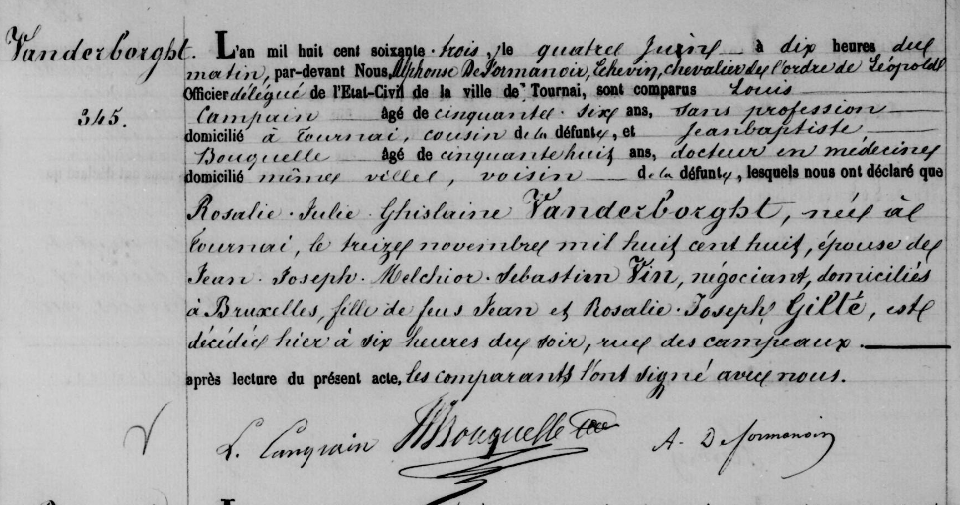 Vanderborght.
345.
L'an mil huit cent soixante-trois, le quatre Juin à dix heures du
matin, par-devant Nous, Alphonse DeFormanoir, Echevin, chevalier de l'ordre de Léopold
Officier délégué de l'Etat-Civil de la ville de Tournai, sont comparus Louis
Campain âgé de cinquante-six ans, sans profession
domicilié à Tournai, cousin de la défunte, et Jeanbaptiste
Bouquelle âgé de cinquante huit ans, docteur en médecine
domicilié même ville, voisin de la défunte, lesquels nous ont déclaré que
Rosalie-Julie-Ghislaine Vanderborght, née à
Tournai, le treize novembre mil huit cent huit, épouse de
Jean-Joseph-Melchior-Sébastien Vin, négociant, domiciliés
à Bruxelles, fille de feus Jean et Rosalie-Joseph Gilté, est
décédée hier à six heures du soir, rue des campeaux.
après lecture du présent acte, les comparants l'ont signé avec nous.
L. Campain Bouquelle A. Deformanoir